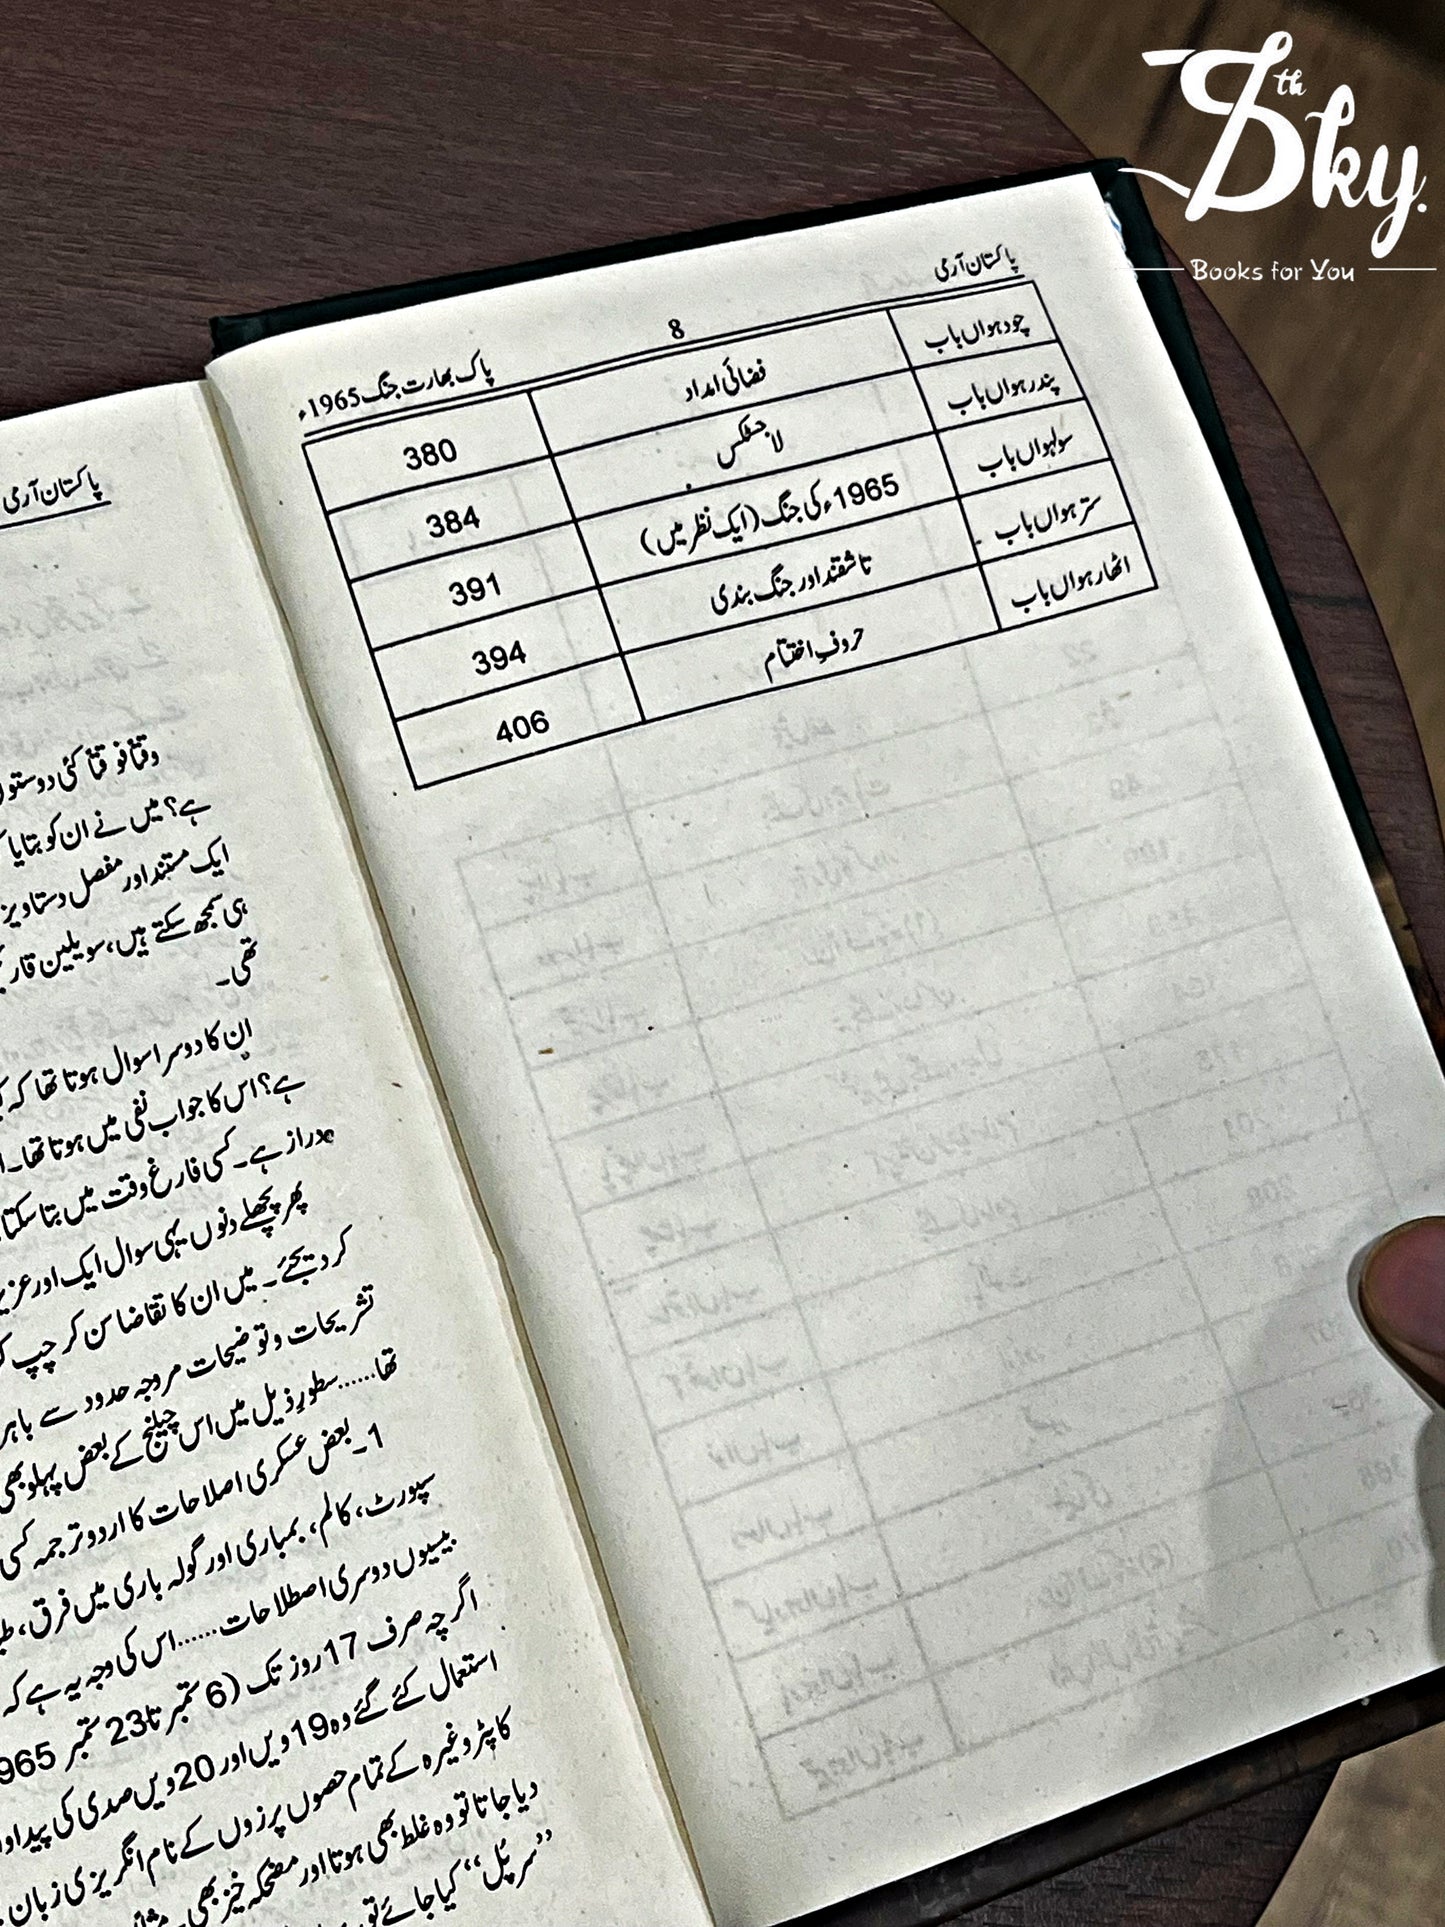 7th Sky
Books for You
پاکستان آرمی 8 پاک بھارت جنگ 1965ء
چودہواں باب فضائی امداد 380
پندرہواں باب لاجسٹکس 384
سولہواں باب 1965ء کی جنگ (ایک نظر میں) 391
سترہواں باب تاشقند اور جنگ بندی 394
اٹھارہواں باب حروفِ اختتام 406
پاکستان آرمی
وقتاً فوقتاً کئی دوستوں
ہے؟ میں نے ان کو بتایا
ایک مستند اور مفصل دستاویز
ہی سمجھ سکتے ہیں، سویلین
تھی۔
ان کا دوسرا سوال ہوتا تھا کہ
ہے؟ اس کا جواب نفی میں ہوتا تھا۔
دراز ہے۔ کسی فارغ وقت میں بتا سکتا
پھر پچھلے دنوں یہی سوال ایک اور عزیز
کر دیجئے۔ میں ان کا تقاضا سن کر چپ
تشریحات و توضیحات مروجہ حدود سے باہر
تھا......سطورِ ذیل میں اس چیلنج کے بعض پہلو بھی
1۔ بعض عسکری اصلاحات کا اردو ترجمہ کسی
سپورٹ، کالم، بمباری اور گولہ باری میں فرق،
بیسیوں دوسری اصطلاحات......اس کی وجہ یہ ہے کہ
اگرچہ صرف 17 روز تک (6 ستمبر تا 23 ستمبر 1965
استعمال کئے گئے وہ 19 ویں اور 20 ویں صدی کی
کاپٹر وغیرہ کے تمام حصوں پرزوں کے نام انگریزی زبان
دیا جاتا تو وہ غلط بھی ہوتا اور مضحکہ خیز بھی۔
”سرپل“ کیا جائے تو